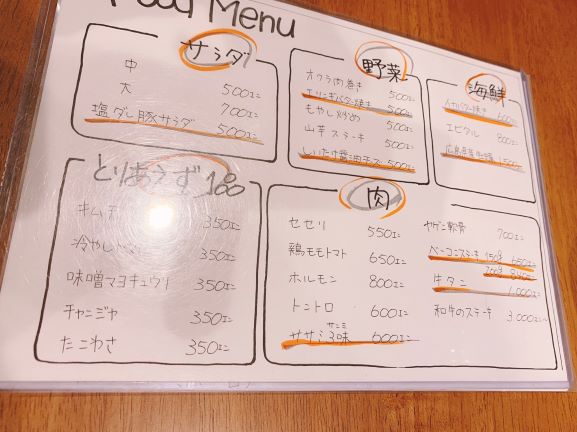 Food Menu
サラダ
中 500エン
大 700エン
塩ダレ豚サラダ 500エン
野菜
オクラ肉巻き 500エン
エリンギバター焼き 500エン
もやし炒め 500エン
山芋ステーキ 500エン
しいたけ醤油チーズ 500エン
海鮮
バター焼き 600エン
エビタル 800エン
広島県産 1500エン
とりあえず1品
キムチ 350エン
冷やし 350エン
味噌マヨキュウリ 350エン
チャンジャ 350エン
たこわさ 350エン
肉
セセリ 550エン
鶏モモトマト 650エン
ホルモン 800エン
トントロ 600エン
ササミ3味 サンミ 600エン
ヤゲン軟骨 700エン
ベーコンステーキ 150g 650エン
200g 850エン
牛タン 1,000エン
和牛のステーキ 3,000エン〜